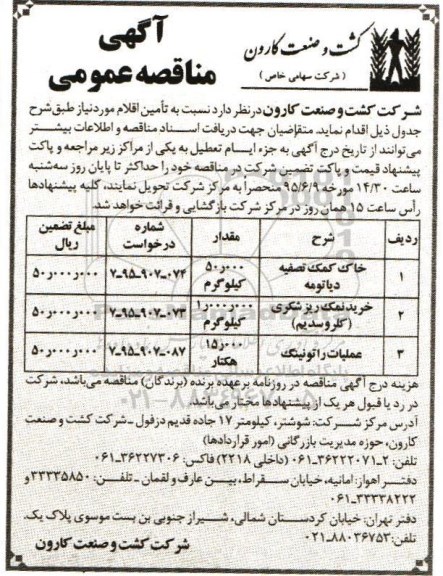 آگهی
مناقصه عمومی
کشت و صنعت کارون
( شرکت سهامی خاص )
شرکت کشت و صنعت کارون درنظر دارد نسبت به تأمین اقلام موردنیاز طبق شرح
جدول ذیل اقدام نماید. متقاضیان جهت دریافت اسناد مناقصه و اطلاعات بیشتر
می‌توانند از تاریخ درج آگهی به جزء ایام تعطیل به یکی از مراکز زیر مراجعه و پاکت
پیشنهاد قیمت و پاکت تضمین شرکت در مناقصه خود را حداکثر تا پایان روز سه‌شنبه
ساعت ۱۴/۳۰ مورخه ۹۵/۶/۹ منحصراً به مرکز شرکت تحویل نمایند، کلیه پیشنهادها
رأس ساعت ۱۵ همان روز در مرکز شرکت بازگشایی و قرائت خواهد شد.
ردیف شرح مقدار شماره درخواست مبلغ تضمین ریال
۱ خاک کمک تصفیه دیاتومه ۵۰ر۰۰۰ کیلوگرم ۷-۹۵-۹۰۷-۰۷۴ ۵۰ر۰۰۰ر۰۰۰
۲ خرید نمک ریز شکری (کلروسدیم) ۱ر۰۰۰ر۰۰۰ کیلوگرم ۷-۹۵-۹۰۷-۰۷۳ ۵۰ر۰۰۰ر۰۰۰
۳ عملیات راتونینگ ۱۵ر۰۰۰ هکتار ۷-۹۵-۹۰۷-۰۸۷ ۵۰ر۰۰۰ر۰۰۰
هزینه درج آگهی مناقصه در روزنامه برعهده برنده (برندگان) مناقصه می‌باشد، شرکت
در رد یا قبول هر یک از پیشنهادها مختار می‌باشد.
آدرس مرکز شرکت: شوشتر، کیلومتر ۱۷ جاده قدیم دزفول ـ شرکت کشت و صنعت
کارون، حوزه مدیریت بازرگانی (امور قراردادها)
تلفن: ۲-۳۶۲۲۲۰۷۱-۰۶۱ (داخلی ۲۲۱۸) فاکس: ۳۶۲۲۷۳۰۶-۰۶۱
دفتر اهواز: امانیه، خیابان سقراط، بین عارف و لقمان ـ تلفن: ۳۳۳۳۵۸۵۰و
۳۳۳۳۸۲۲۲-۰۶۱
دفتر تهران: خیابان کردستان شمالی، شیراز جنوبی بن بست موسوی پلاک یک.
تلفن: ۸۸۰۳۶۷۵۳-۰۲۱
شرکت کشت و صنعت کارون